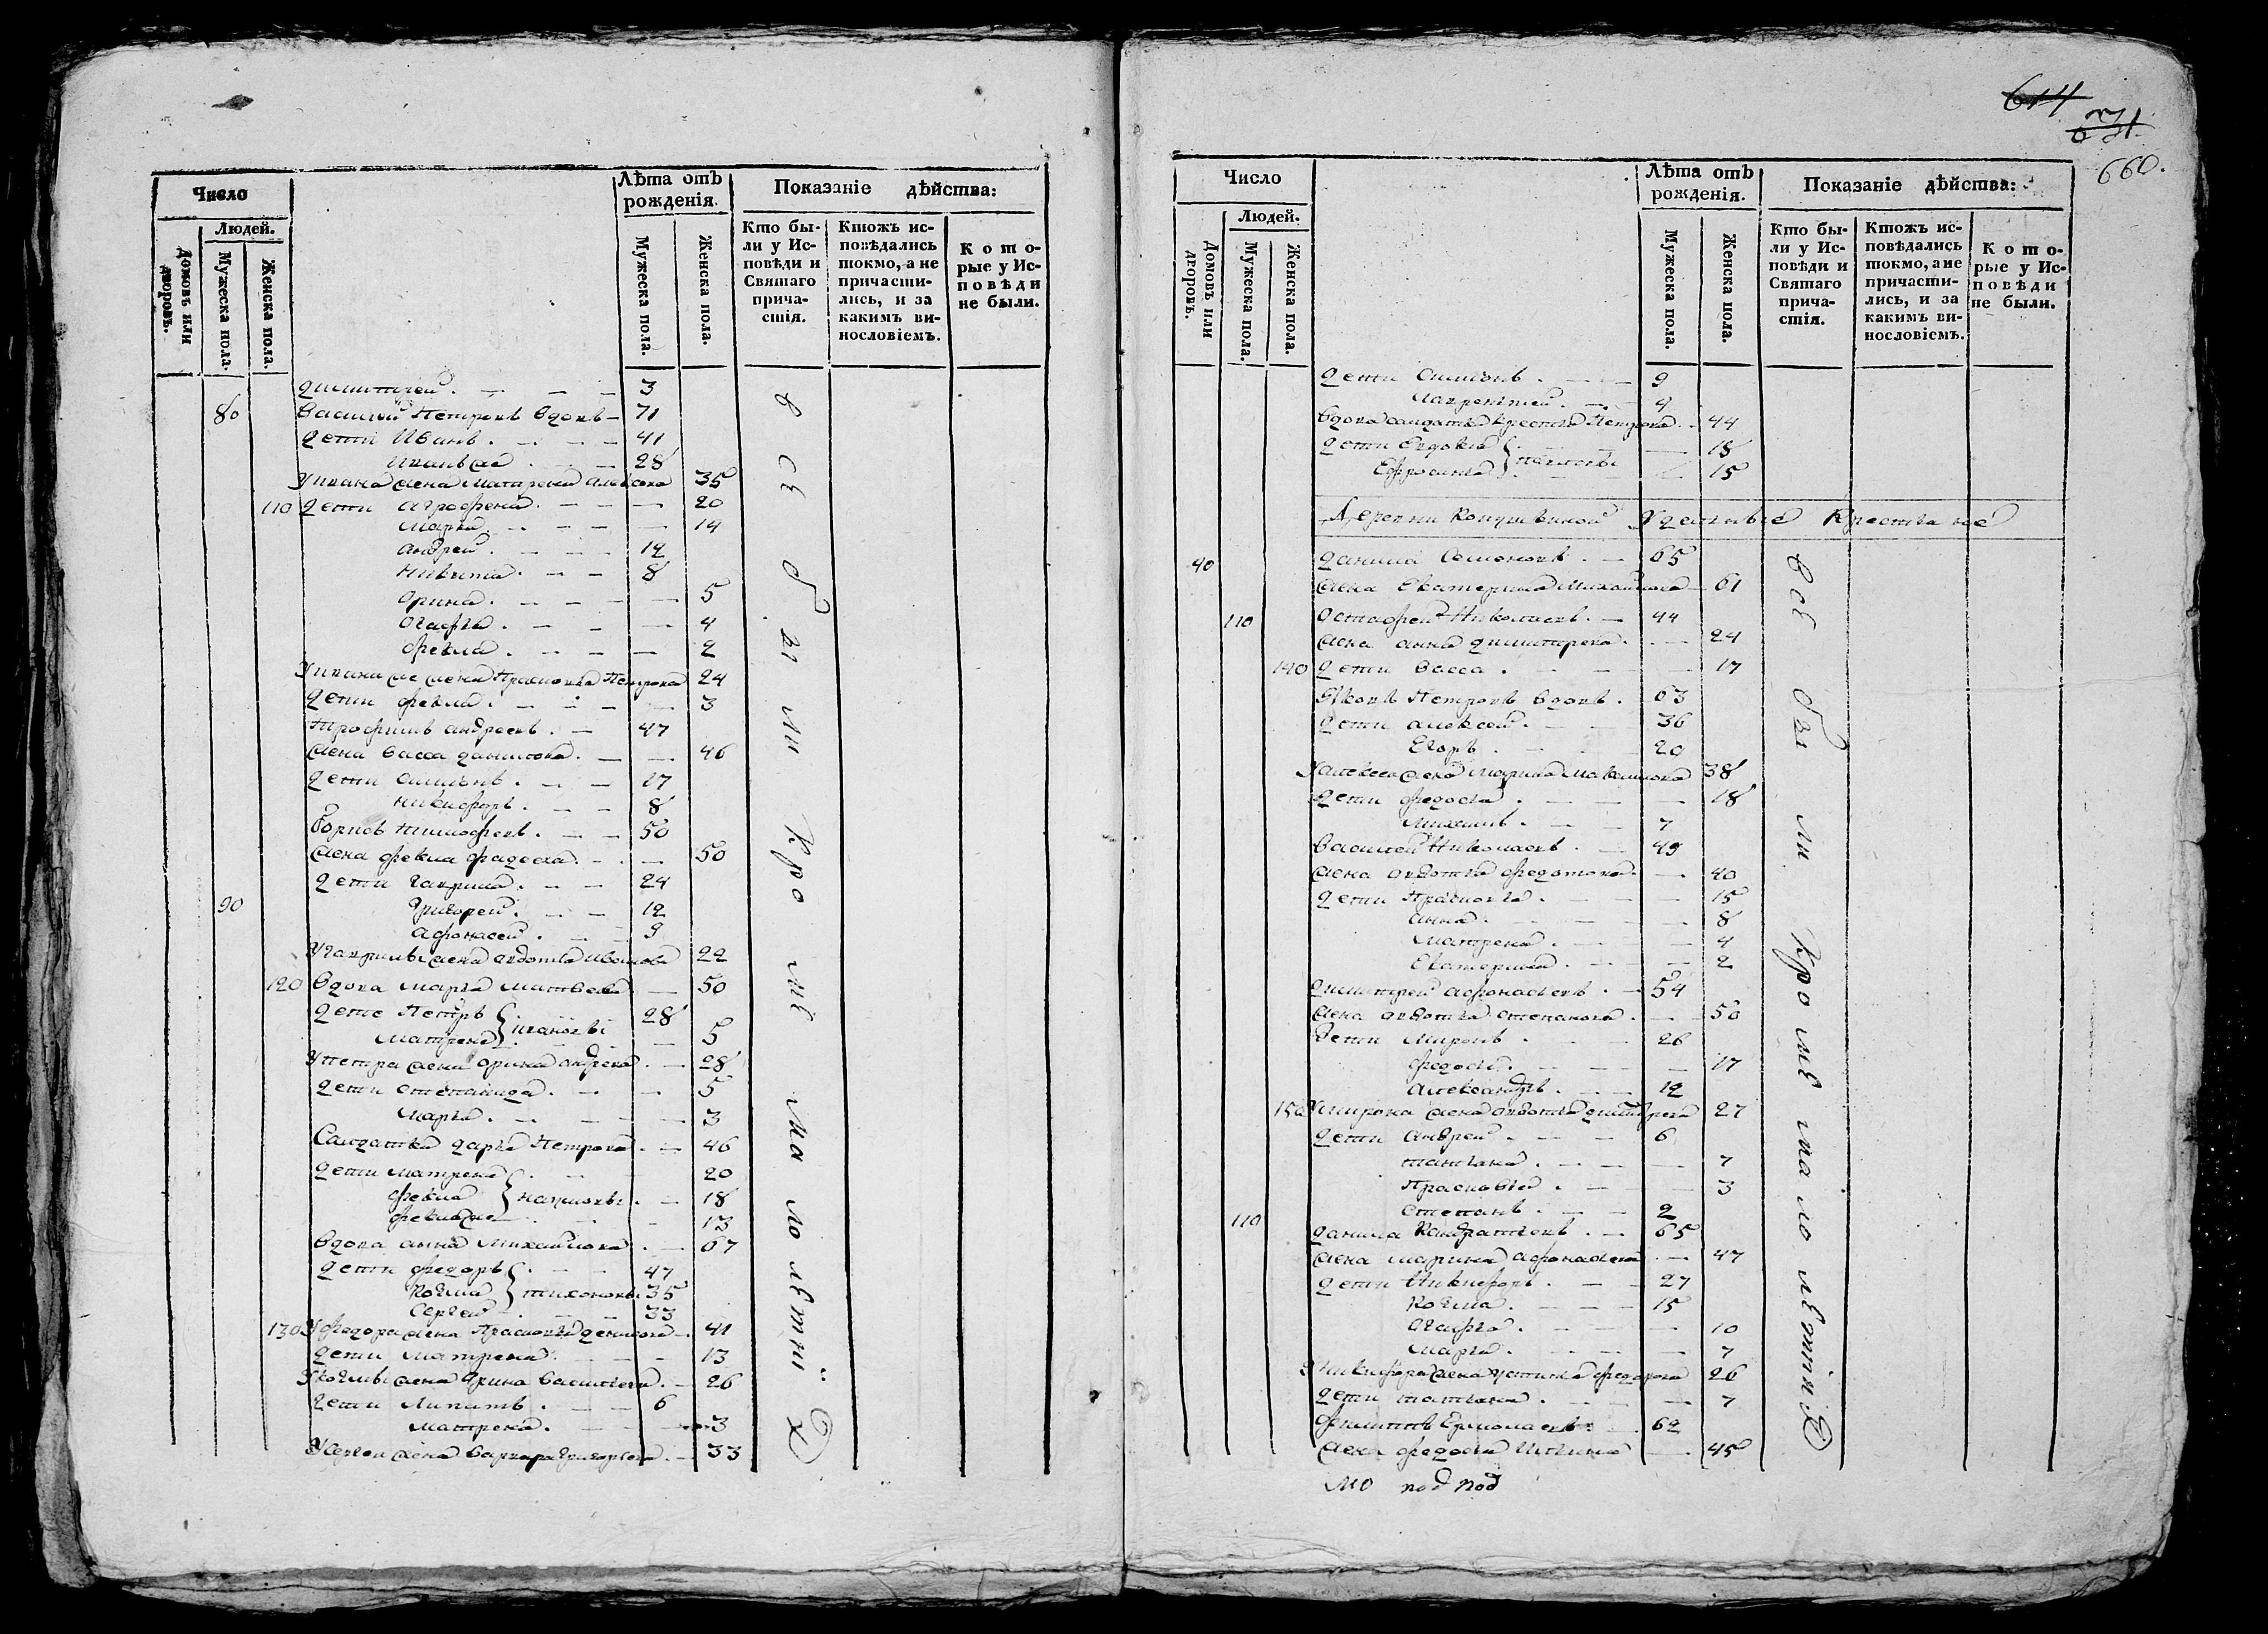 Число
Людей.
Домовъ или дворовъ.
Мужеска пола.
Женска пола.
Лѣта отъ рожденія.
Мужеска пола.
Женска пола.
Показаніе дѣйства:
Кто были у Исповѣди и Святаго причастія.
Ктожъ исповѣдались токмо, а не причастились, и за какимъ винословіемъ.
Которые у Исповѣди не были.
Димитрей 3
80 Василий Петровъ вдовъ 71
дети Иванъ 41
Иванъ же 28
У Ивана жена Матрена 35
110 дети Агрофена 20
Марья 14
Андрей 12
Никита 8
Орина 5
Огафья 4
Фекла 2
У Ивана же жена Прасковья Петрова 24
дети Фекла 3
Трофимъ Андреевъ 47
жена Васса Данилова 46
дети Симионъ 17
Никифоръ 8
Борисъ Тимофеевъ 50
жена Фекла Фадеева 50
дети Гаврила 24
90 Григорей 12
Афонасей 9
У Гаврилы жена Авдотья Иванова 22
120 вдова Марья Матвеева 50
дети Петръ 28
Матрена Ивановы 5
У Петра жена Орина Андреева 28
дети Степанида 5
Марья 3
Салдатка Дарья Петрова 46
дети Матрена 20
Фекла 18
Фекла же 13
вдова Анна Михайлова 67
дети Федоръ 47
Козма Тихоновы 35
Сергей 33
130 У Федора жена Прасковья Денисова 41
дети Матрена 13
У Козмы жена Орина Васильева 26
дети Липатъ 6
Матрена 3
У Сергея жена Варвара Григорьева 33
Всѣ были кромѣ малолѣтних
614
631
660.
Число
Людей.
Домовъ или дворовъ.
Мужеска пола.
Женска пола.
Лѣта отъ рожденія.
Мужеска пола.
Женска пола.
Показаніе дѣйства:
Кто были у Исповѣди и Святаго причастія.
Ктожъ исповѣдались токмо, а не причастились, и за какимъ винословіемъ.
Которые у Исповѣди не были.
дети Симионъ 9
Лаврентей 4
вдова салдатка Петрова 44
дети Евдокия 18
Ефросинья 15
Деревни Удельные Крестьяне
40 Данила Семеновъ 65
жена Екатерина Михайлова 61
110 Остафей Николаевъ 44
жена Анна Димитрева 24
140 дети Васса 17
Яковъ Петровъ вдовъ 63
дети Алексей 36
Егоръ 20
У Алексея жена Марина Максимова 38
дети Федосья 18
Михаилъ 7
Василей Николаевъ 49
жена Авдотья Федотова 40
дети Прасковья 15
Анна 8
Матрена 4
Екатерина 2
Димитрей Афонасьевъ 54
жена Авдотья Степанова 50
дети Миронъ 26
Федосья 17
Александръ 12
150 У Мирона жена Авдотья Димитрева 27
дети Андрей 6
Татиана 7
Прасковья 3
Степанъ 2
110 Данила Кандратьевъ 65
жена Марина Афонасьева 47
дети Никифоръ 27
Козма 15
Агафья 10
Марья 7
У Никифора жена Устинья Федорова 26
дети Татиана 7
Филиппъ Ермолаевъ 62
жена Федосья Ильина 45
Всѣ были кромѣ малолѣтнихъ